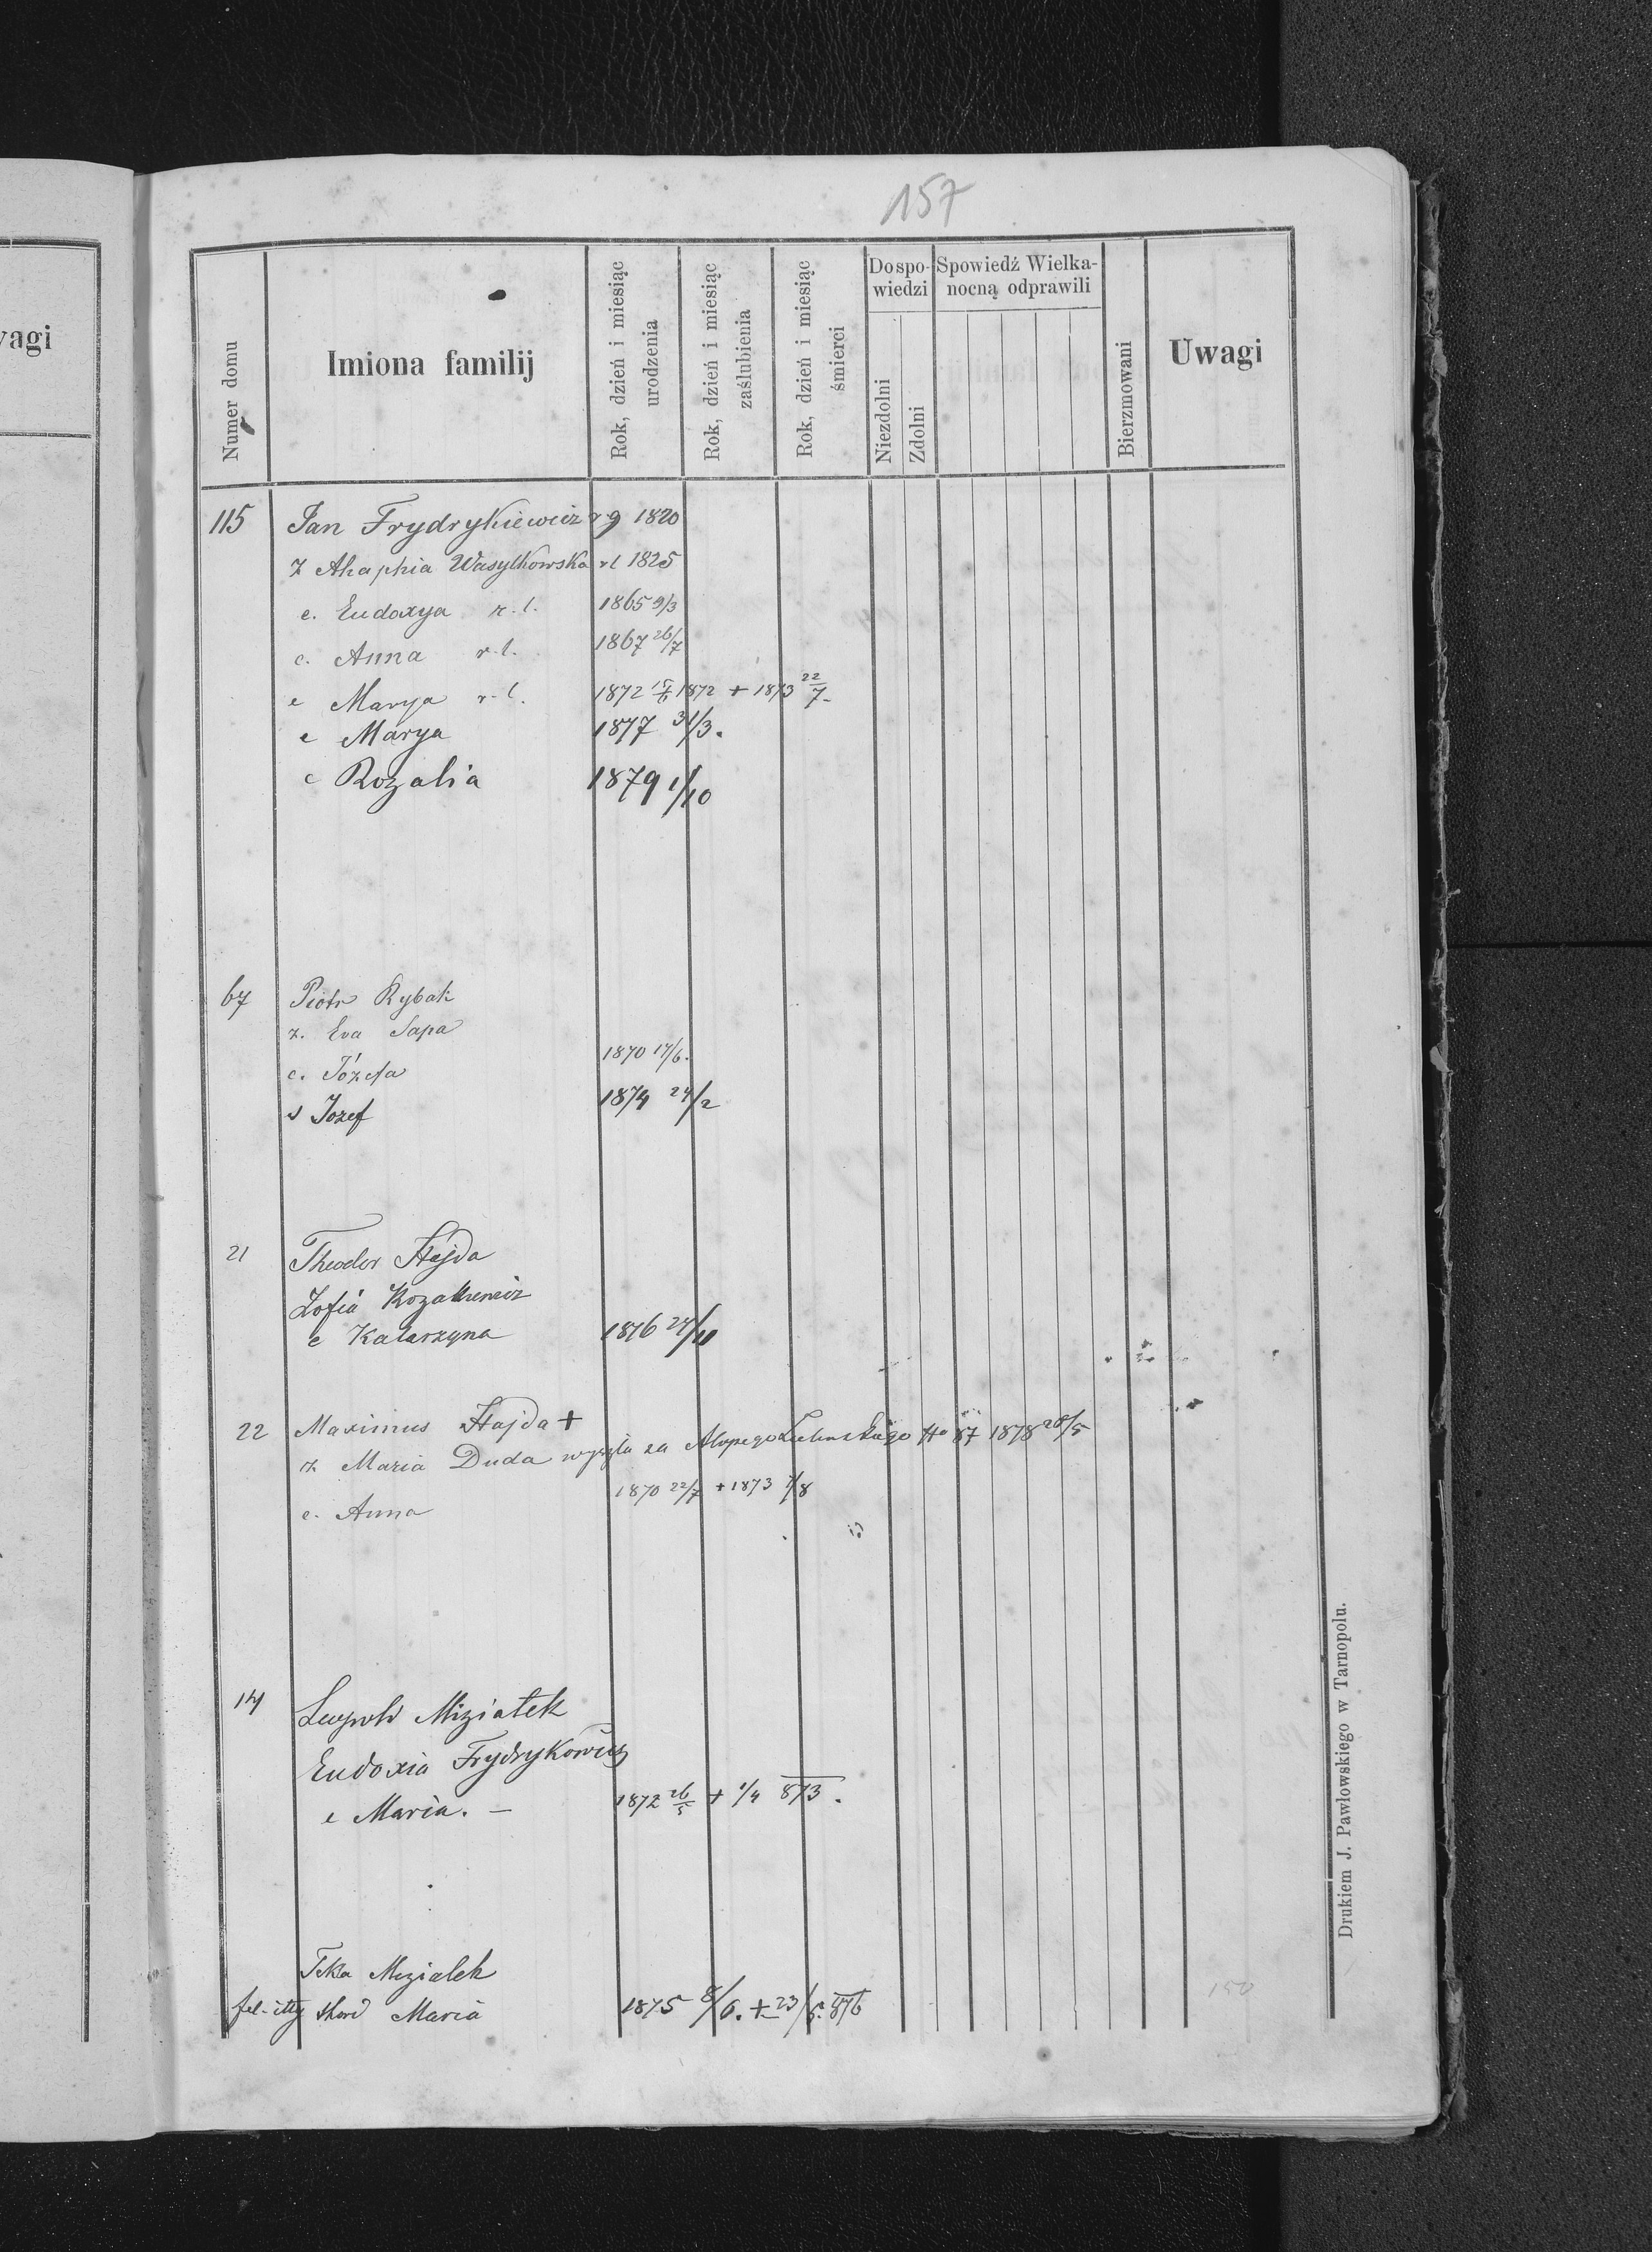 157
vagi
Numer domu
Imiona familij
Rok, dzień i miesiąc urodzenia
Rok, dzień i miesiąc zaślubienia
Rok, dzień i miesiąc śmierci
Do spowiedzi
Niezdolni
Zdolni
Spowiedź Wielkanocną odprawili
Bierzmowani
Uwagi
115 Jan Frydrykiewicz r g 1820
ż Ahaphia Wasylkowska r l 1825
c. Eudoxya r. l. 1865 9/3
c. Anna r. l. 1867 26/7
c Marya r. l. 1872 1872 + 1873 22/7.
c Marya 1877 31/3.
c Rozalia 1879 1/10
67 Piotr Rybak
ż. Eva Sapa
c. Józefa 1870 17/6.
s Jozef 1874 24/2
21 Theodor Hajda
Zofia
c Katarzyna 1876 24/11
22 Maximus Hajda +
ż Maria Duda wyszła za No 67 1878 28/5
c. Anna 1870 22/7 + 1873 7/8
14 Leopold Miziałek
Eudoxia Frydrykowicz
c Maria. – 1872 26/5 + 1/4 873.
Tekla Mizialek
Maria 1875 8/6. + 23/6. 876
150
Drukiem J. Pawłowskiego w Tarnopolu.